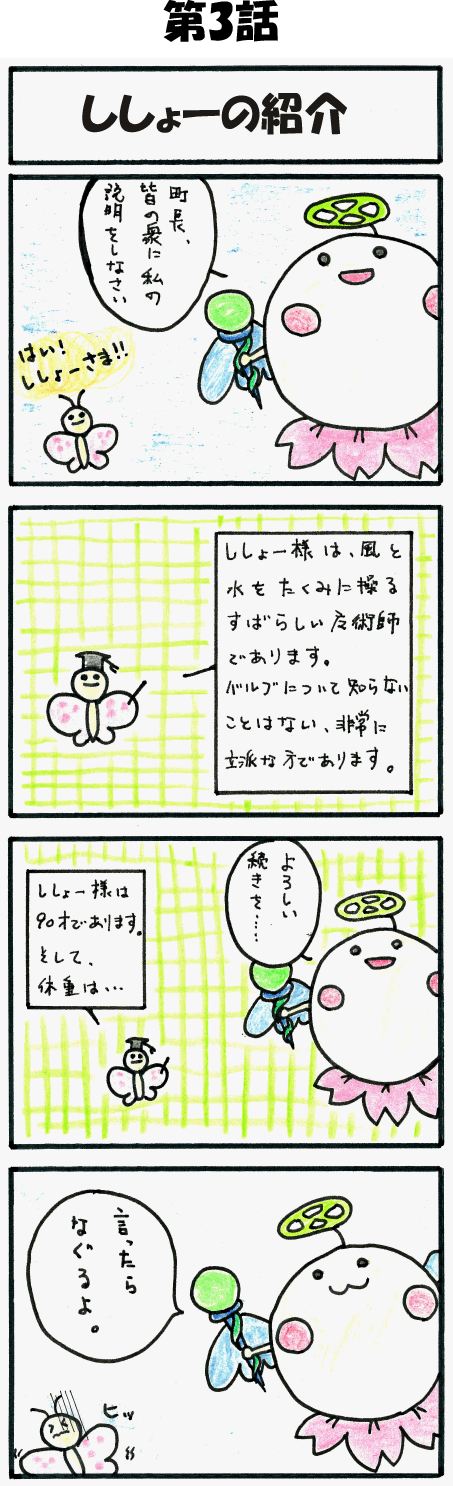 第3話
ししょーの紹介
町長、
皆の衆に私の
説明をしなさい
はい!
ししょーさま!!
ししょー様は、風と
水をたくみに操る
すばらしい魔術師
であります。
バルブについて知らない
ことはない、非常に
立派な方であります。
よろしい
続きを……
ししょー様は
90才であります。
そして、
体重は…
言ったら
なぐるよ。
ヒッ